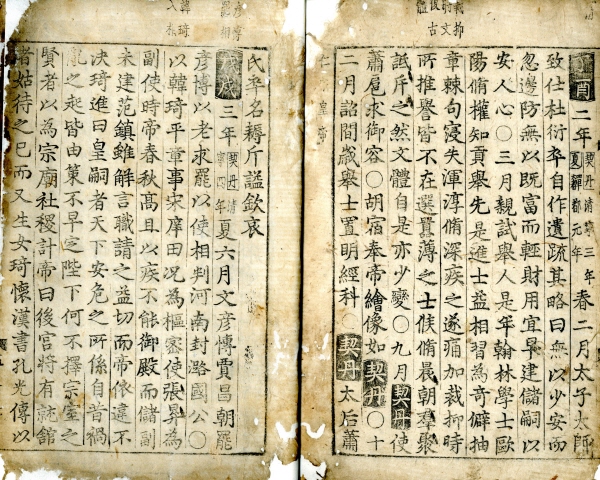 酉二年契丹清寧三年夏奲都元年春二月太子太師
致仕杜衍卒自作遺疏其略曰無以少安而
忽邊防無以既富而輕財用宜早建儲嗣以
安人心○三月親試舉人是年翰林學士歐
陽脩權知貢舉先是進士益相習為奇僻抽
章棘句寖失渾淳脩深疾之遂痛加裁抑時
所推譽皆不在選囂薄之士候脩晨朝羣聚
詆斥之然文體自是亦少變○九月契丹使
蕭扈求御容○胡宿奉帝繪像如契丹○十
二月詔間歲舉士置明經科○契丹太后蕭
氏卒名耨斤諡欽哀
戊戌三年契丹清寧四年夏六月文彥博賈昌朝罷
彥博以老求罷以使相判河南封潞國公○
以韓琦平章事宋庠田况為樞密使張昪為
副使時帝春秋高且以疾不能御殿而儲副
未建范鎮雖解言職請之益切而帝依違不
決琦進曰皇嗣者天下安危之所係自昔禍
亂之起皆由策不早定陛下何不擇宗室之
賢者以為宗廟社稷計帝曰後宮將有就館
者姑待之已而又生女琦懷漢書孔光傳以